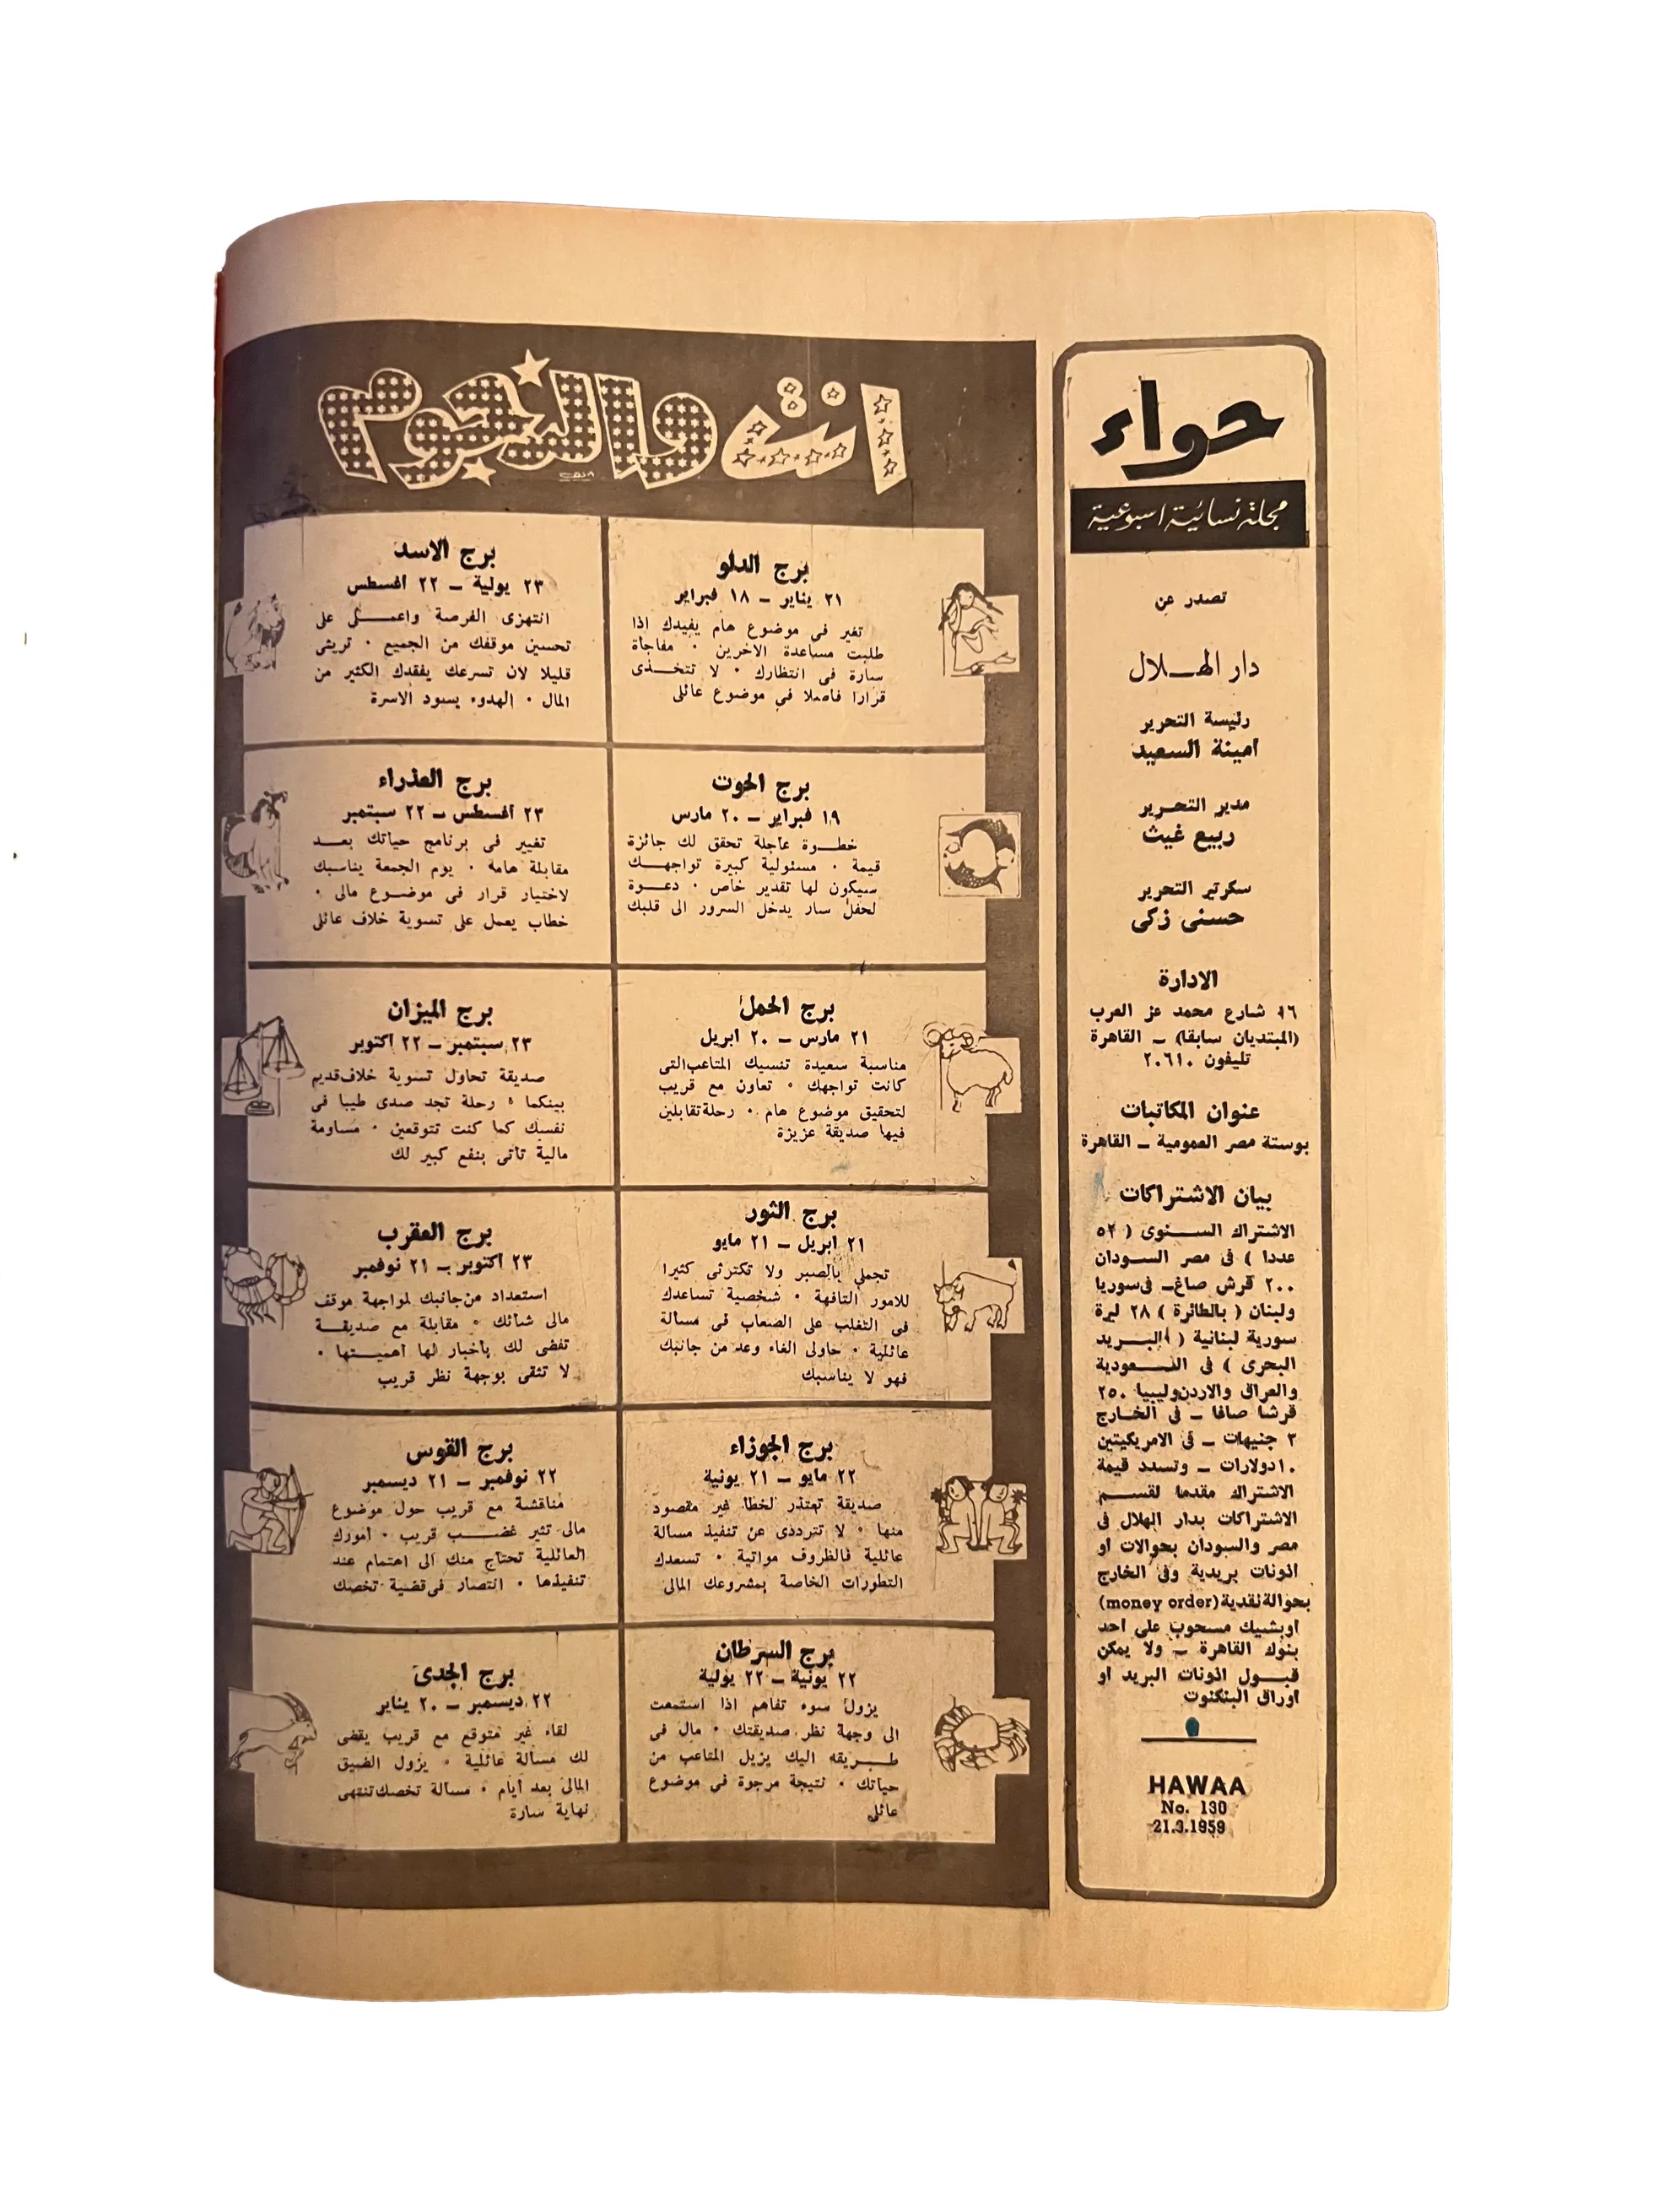 حواء
مجلة نسائية اسبوعية
تصدر عن
دار الهــلال
رئيسة التحرير
امينة السعيد
مدير التحـرير
ربيع غيث
سكرتير التحرير
حسنى زكى
الادارة
١٦ شارع محمد عز العرب
(المبتديان سابقا) ــ القاهرة
تليفون ٢٠٦١٠
عنوان المكاتبات
بوستة مصر العمومية ــ القاهرة
بيان الاشتراكات
الاشتراك السـنوى ( ٥٢
عددا ) فى مصر السـودان
٢٠٠ قرش صاغ ــ فى سوريا
ولبنان ( بالطائرة ) ٢٨ ليرة
سورية لبنانية ( البـريد
البحرى ) فى السـعودية
والعراق والاردن وليبيا ٢٥٠
قرشا صاغا ــ فى الخـارج
٣ جنيهات ــ فى الامريكيتين
١٠ دولارات ــ وتسدد قيمة
الاشتراك مقدما لقسـم
الاشتراكات بدار الهلال فى
مصر والسودان بحوالات او
اذونات بريدية وفى الخارج
بحوالة نقدية (money order)
او بشيك مسحوب على احد
بنوك القاهرة ــ ولا يمكن
قبـول اذونات البريد او
اوراق البنكنوت
HAWAA
No. 130
21.3.1959
انت والنجوم
برج الدلو
٢١ يناير ــ ١٨ فبراير
تغير فى موضوع هام يفيدك اذا
طلبت مساعدة الاخرين ٠ مفاجأة
سارة فى انتظارك ٠ لا تتخـذى
قرارا فاصلا فى موضوع عائلى
برج الحوت
١٩ فبراير ــ ٢٠ مارس
خطـوة عاجلة تحقق لك جائزة
قيمة ٠ مسئولية كبيرة تواجهـك
سيكون لها تقدير خاص ٠ دعـوة
لحفل سار يدخل السرور الى قلبك
برج الحمل
٢١ مارس ــ ٢٠ ابريل
مناسبة سعيدة تنسيك المتاعب التى
كانت تواجهك ٠ تعاون مع قريب
لتحقيق موضوع هام ٠ رحلة تقابلين
فيها صديقة عزيزة
برج الثور
٢١ ابريل ــ ٢١ مايو
تجملى بالصبر ولا تكترثى كثيرا
للامور التافهة ٠ شخصية تساعدك
فى التغلب على الصعاب فى مسألة
عائلية ٠ حاولى الغاء وعد من جانبك
فهو لا يناسبك
برج الجوزاء
٢٢ مايو ــ ٢١ يونية
صديقة تعتذر لخطأ غير مقصود
منها ٠ لا تترددى عن تنفيذ مسألة
عائلية فالظروف مواتية ٠ تسعدك
التطورات الخاصة بمشروعك المالى
برج السرطان
٢٢ يونية ــ ٢٢ يولية
يزول سوء تفاهم اذا استمعت
الى وجهة نظر صديقتك ٠ مال فى
طـريقه اليك يزيل المتاعب من
حياتك ٠ نتيجة مرجوة فى موضوع
عائلى
برج الاسد
٢٣ يولية ــ ٢٢ أغسطس
انتهزى الفرصة واعمـلى على
تحسين موقفك من الجميع ٠ تريثى
قليلا لان تسرعك يفقدك الكثير من
المال ٠ الهدوء يسود الاسرة
برج العذراء
٢٣ أغسطس ــ ٢٢ سبتمبر
تغيير فى برنامج حياتك بعـد
مقابلة هامة ٠ يوم الجمعة يناسبك
لاختيار قرار فى موضـوع مالى ٠
خطاب يعمل على تسوية خلاف عائلى
برج الميزان
٢٣ سبتمبر ــ ٢٢ اكتوبر
صديقة تحاول تسوية خلاف قديم
بينكما ٠ رحلة تجد صدى طيبا فى
نفسك كما كنت تتوقعين ٠ مساومة
مالية تأتى بنفع كبير لك
برج العقرب
٢٣ اكتوبر ــ ٢١ نوفمبر
استعداد من جانبك لمواجهة موقف
مالى شائك ٠ مقابلة مع صديقـة
تفضى لك بأخبار لها أهميـتها ٠
لا تثقى بوجهة نظر قريب
برج القوس
٢٢ نوفمبر ــ ٢١ ديسمبر
مناقشة مع قريب حول موضوع
مالى تثير غضـب قريب ٠ أمورك
العائلية تحتاج منك الى اهتمام عند
تنفيذها ٠ انتصار فى قضية تخصك
برج الجدى
٢٢ ديسمبر ــ ٢٠ يناير
لقاء غير متوقع مع قريب يقضى
لك مسألة عائلية ٠ يزول الضيق
المالى بعد أيام ٠ مسألة تخصك تنتهى
نهاية سارة